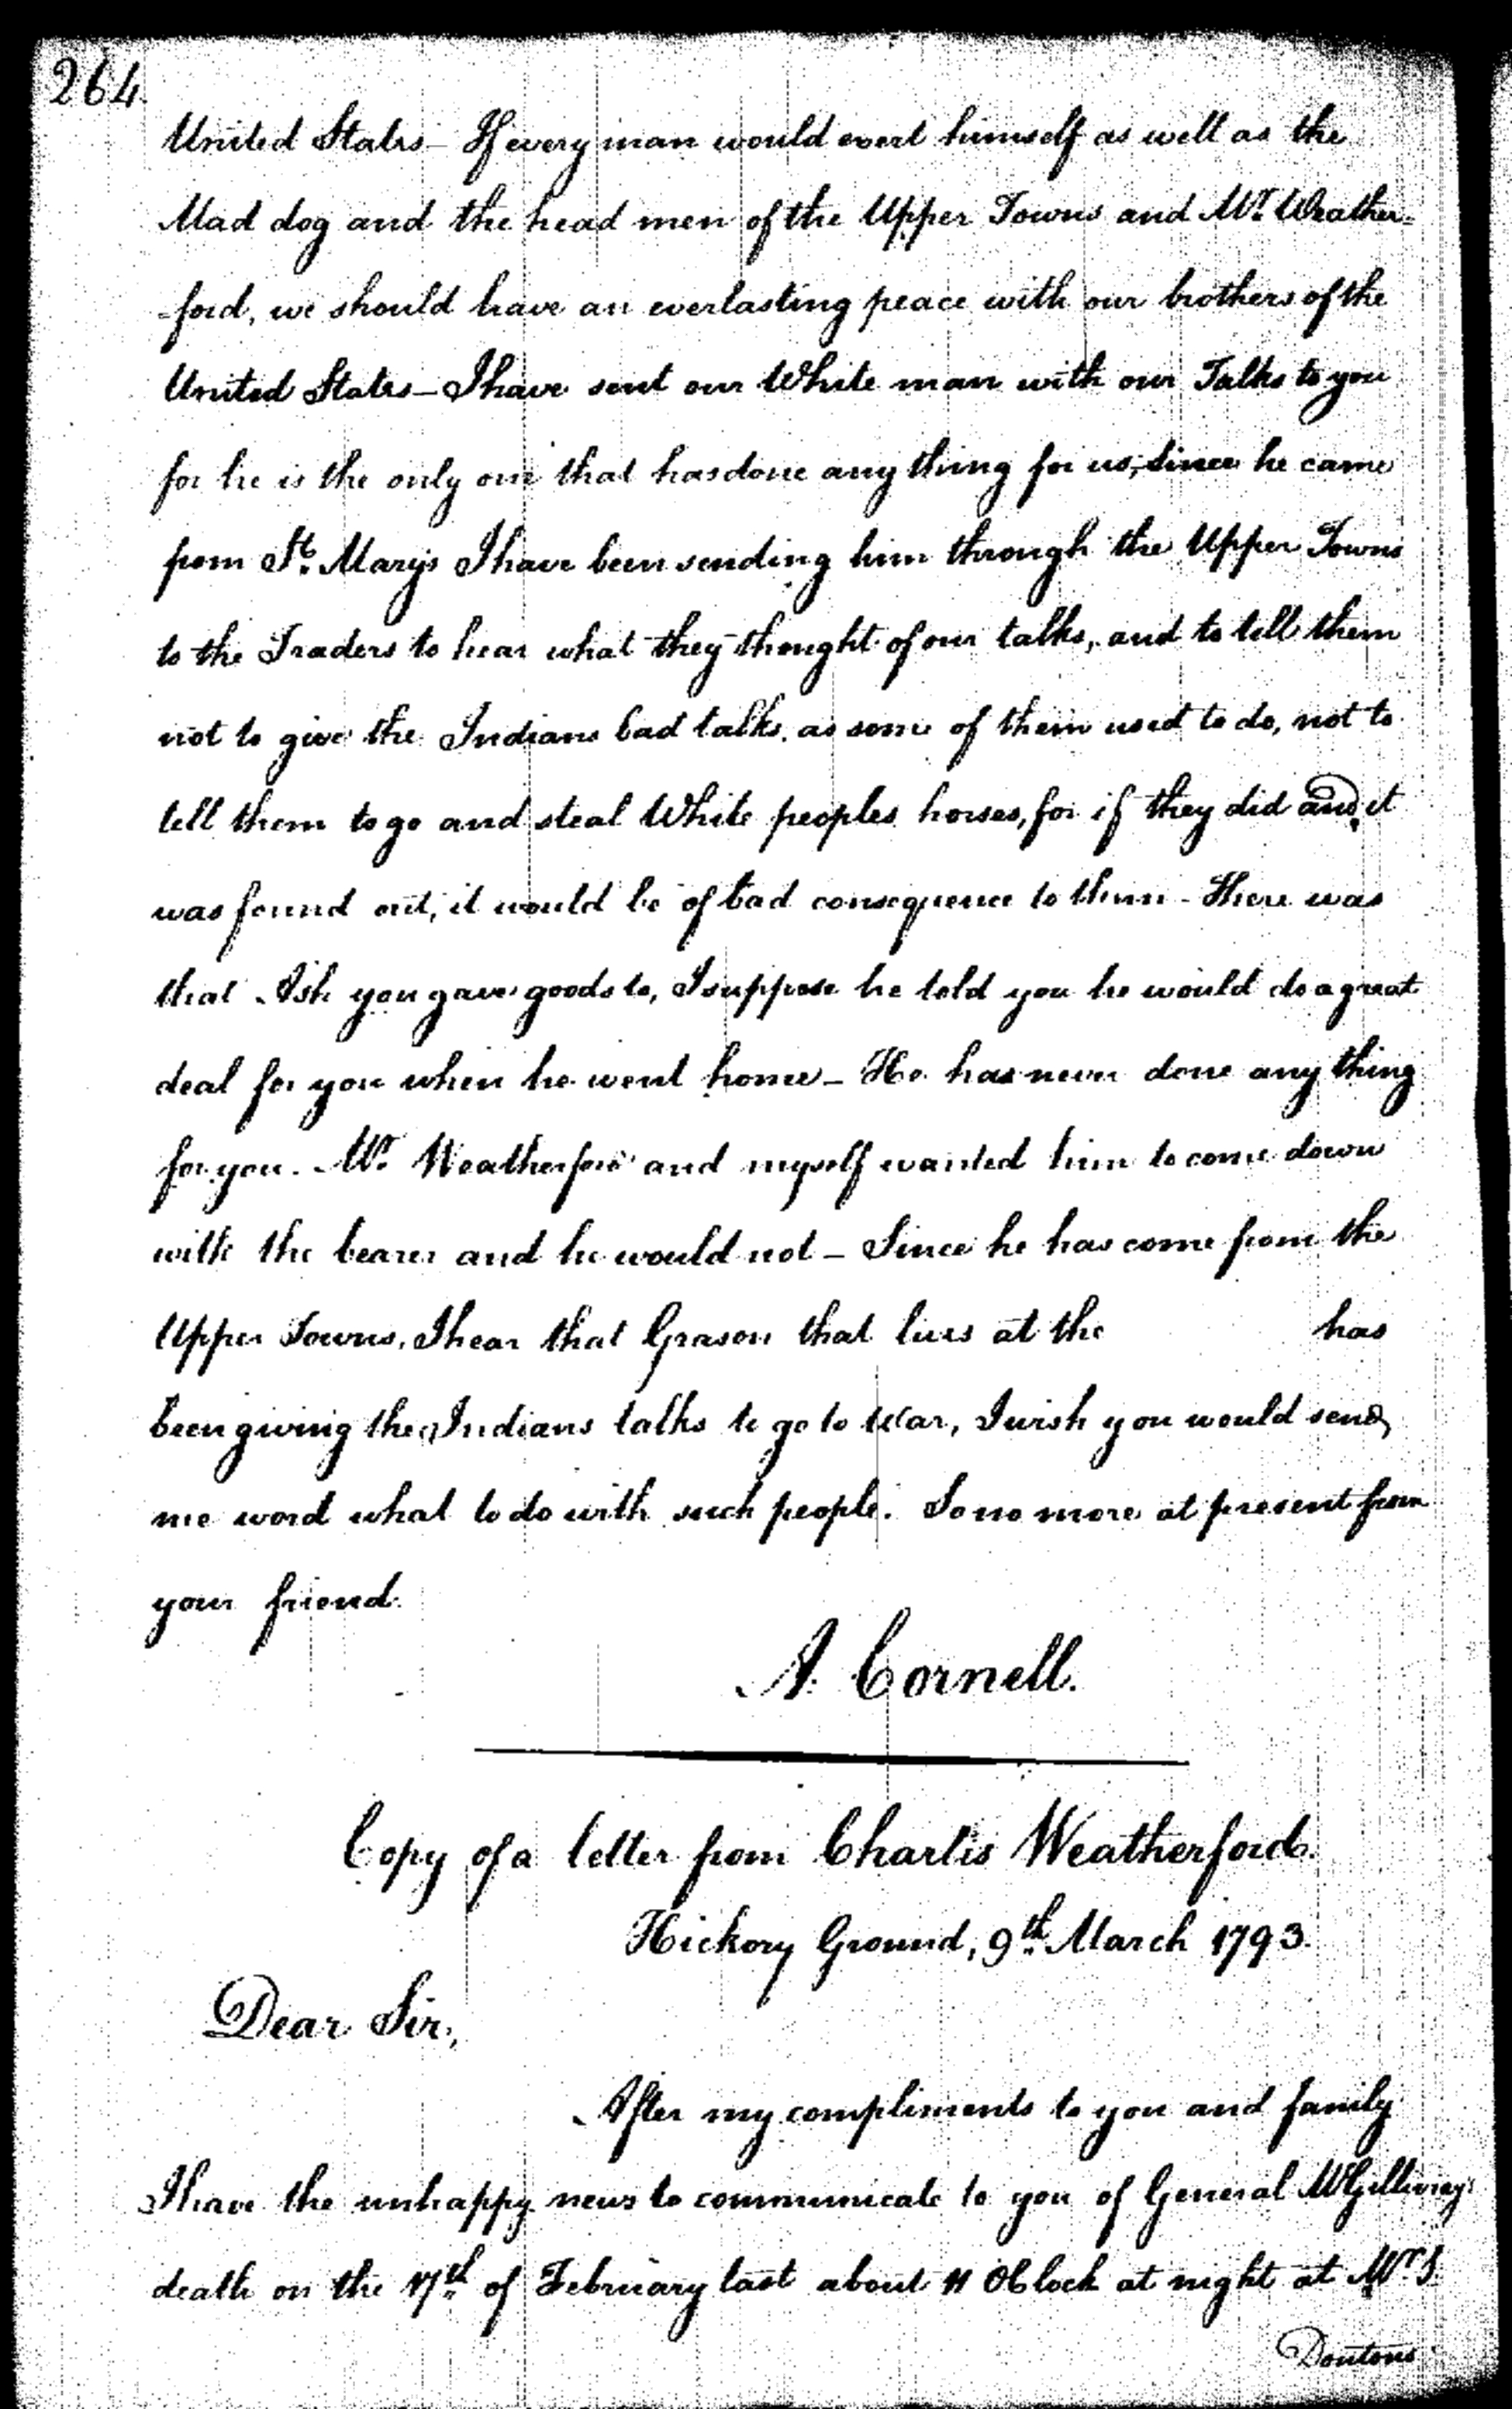 264
United States – If every man would exert himself as well as the
Mad dog and the head men of the Upper Towns and Mr. Weather-
-ford, we should have an everlasting peace with our brothers of the
United States – I have sent our White man with our Talks to you
for he is the only one that has done any thing for us, since he came
from St. Mary's I have been sending him through the Upper Towns
to the Traders to hear what they thought of our talks, and to tell them
not to give the Indians bad talks, as some of them used to do, not to
tell them to go and steal White peoples horses, for if they did and it
was found out, it would be of bad consequence to them – There was
that you gave goods to, I suppose he told you he would do a great
deal for you when he went home – He has never done any thing
for you. Mr. Weatherford and myself wanted him to come down
with the bearer and he would not – Since he has come from the
Upper Towns, I hear that Grason that lives at the has
been giving the Indians talks to go to War, I wish you would send
me word what to do with such people. So no more at present from
your friend.
A. Cornell.
Copy of a letter from Charles Weatherford.
Hickory Ground, 9th. March 1793.
Dear Sir,
After my compliments to you and family
I have the unhappy news to communicate to you of General McGillivrays
death on the 17th. of February last about 11 OClock at night at Mr.
Doutons